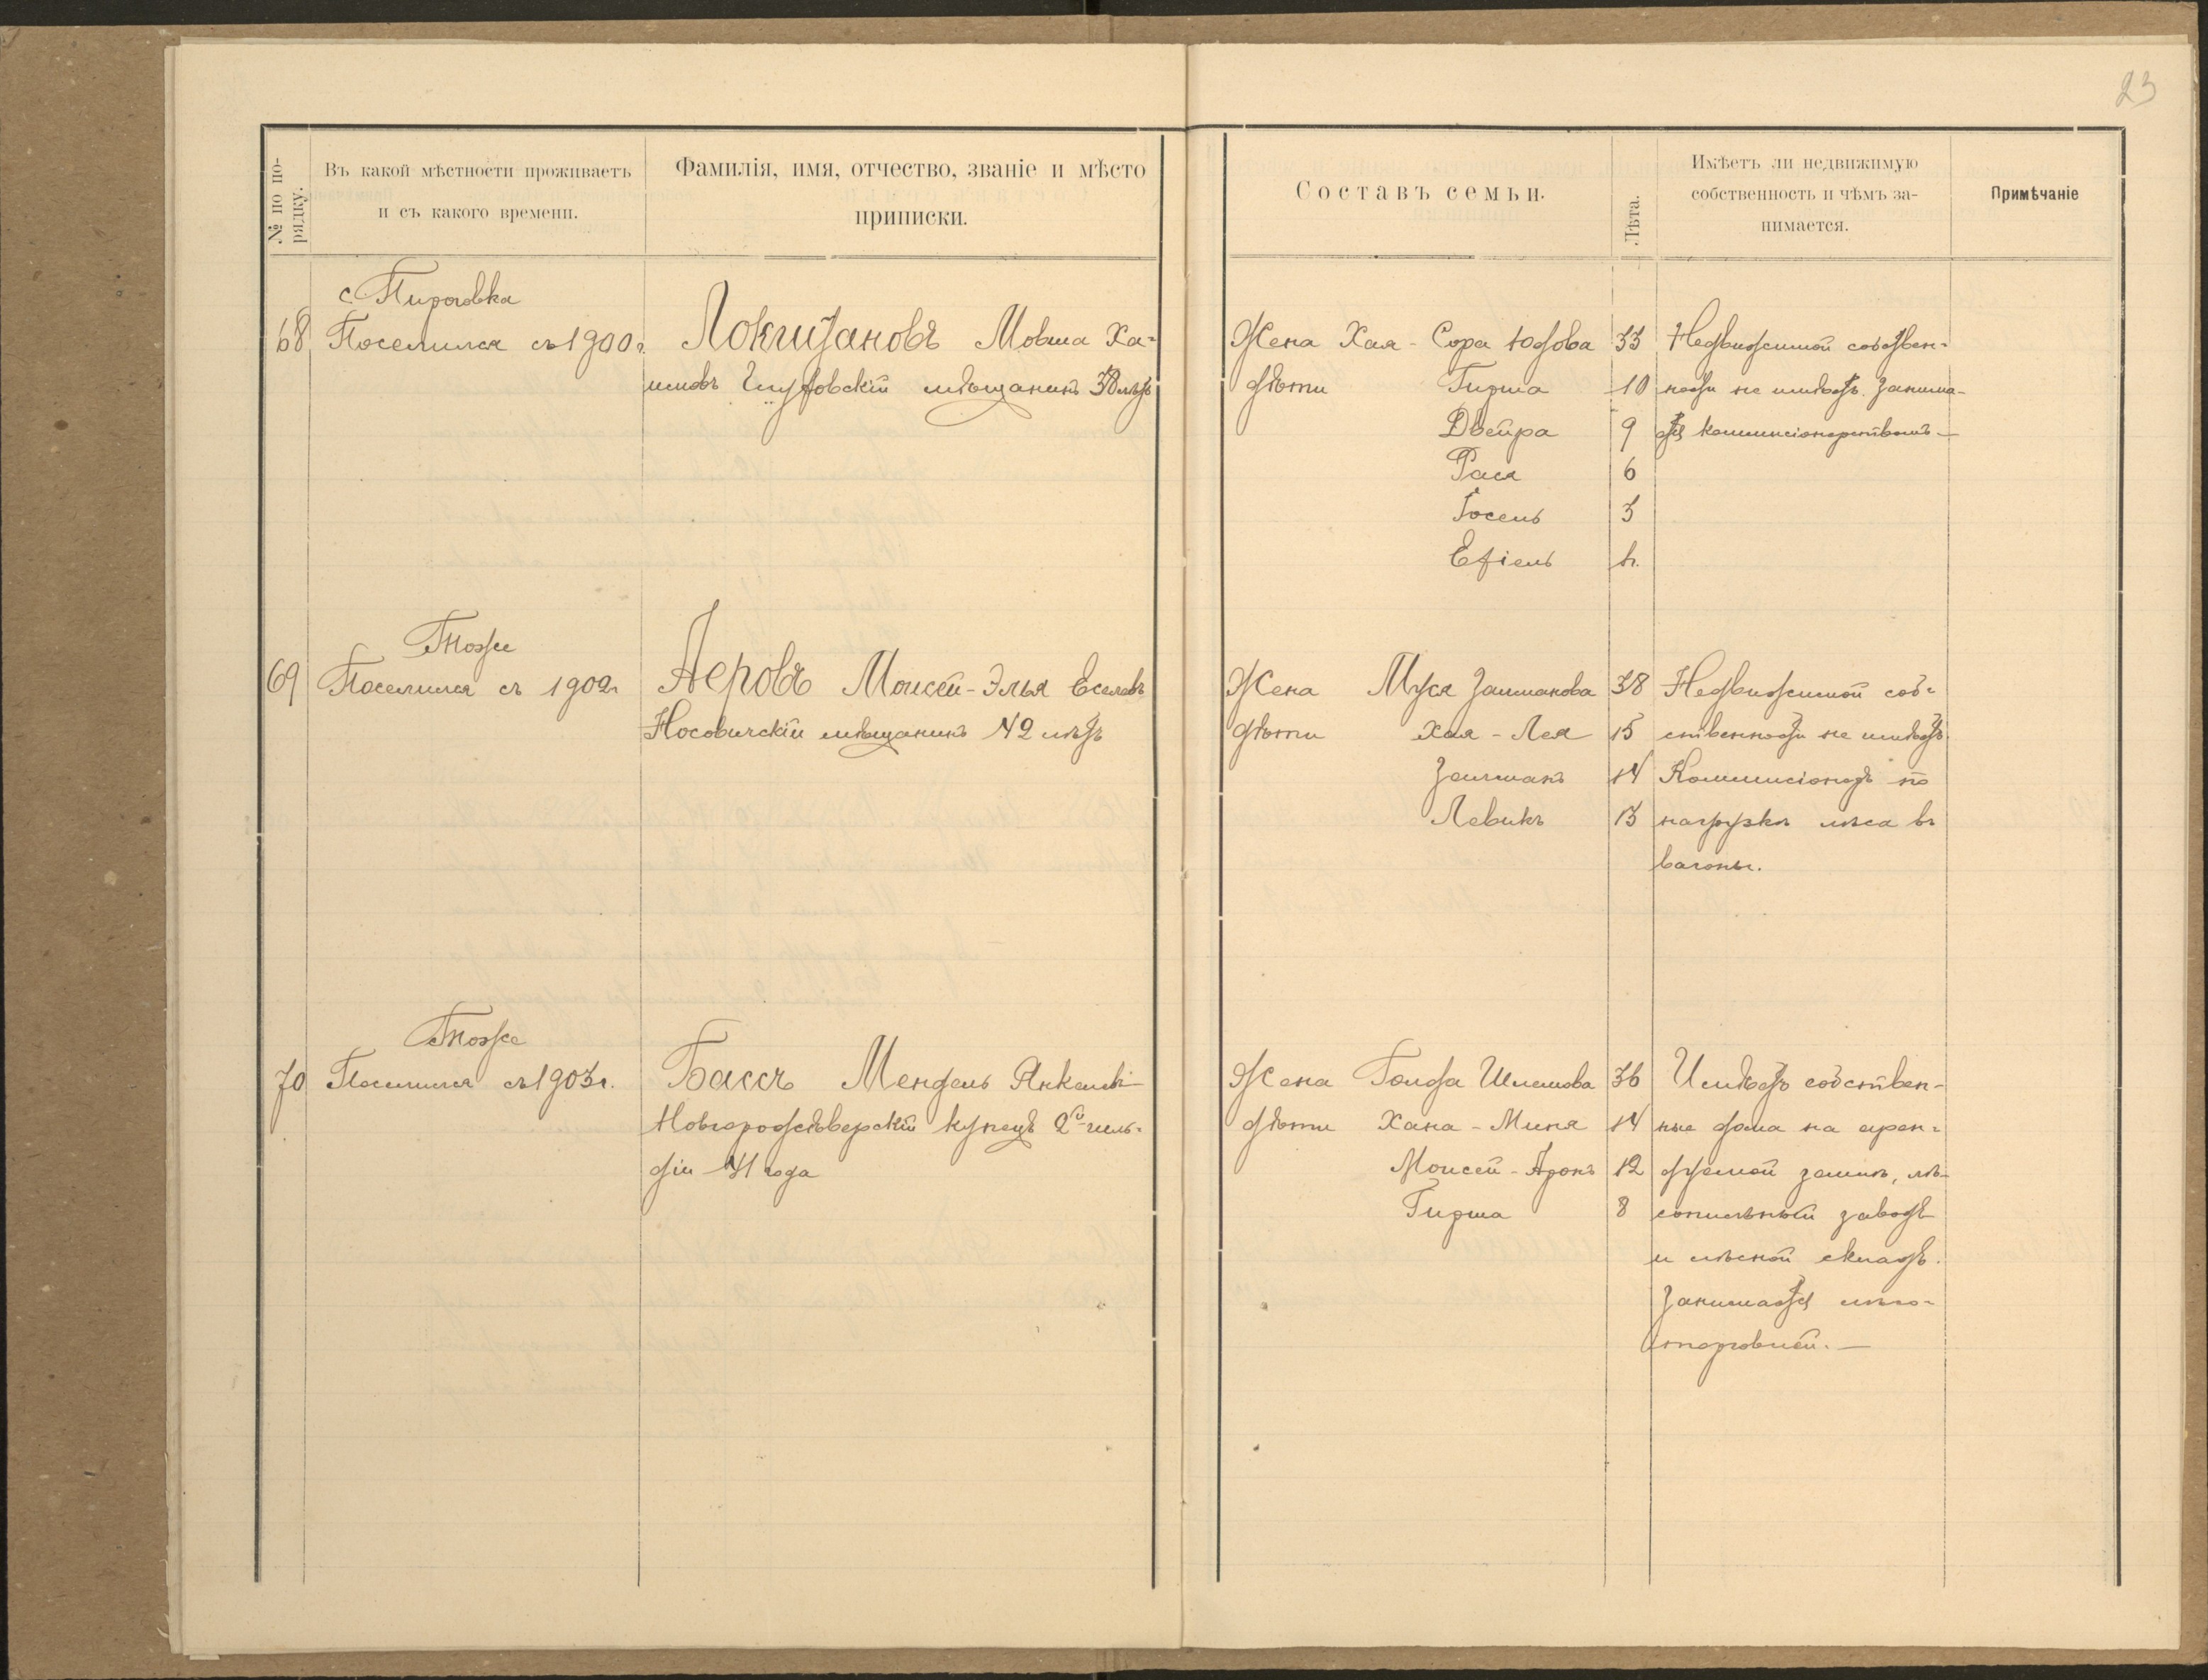 23
№ по по-
рядку.
Въ какой мѣстности проживаетъ
и съ какого времени.
Фамилія, имя, отчество, званіе и мѣсто
приписки.
Составъ семьи.
Лѣта.
Имѣетъ ли недвижимую
собственность и чѣмъ за-
нимается.
Примѣчаніе
с. Пироговка
68 Поселился съ 1900 г.
Мовша Ха-
имовъ мѣщанинъ 38 лѣтъ
Жена Хая - Сора Юдова 33
дѣти Гирша 10
Двейра 9
Рася 6
Іосель 3
1/2
Недвижимой собствен-
ности не имѣетъ. Занима-
ется коммисіонерствомъ —
Тоже
69 Поселился съ 1902 г
Аеровъ Моисей - Элья Еселевъ
Носовичскій мѣщанинъ 42 лѣтъ
Жена Муся Залманова 38
дѣти Хая - Лея 15
Залманъ 14
Левикъ 13
Недвижимой соб-
ственности не имѣетъ.
Коммисіонеръ по
нагрузкѣ лѣса въ
вагоны.
Тоже
70 Поселился съ 1903 г.
Бассъ Мендель Янкелев
Новгородсѣверскій купецъ 2й гиль-
діи 41 года
Жена Голда Шлемова 36
дѣти Хана - Миня 14
Моисей - Аронъ 12
Гирша 8
Имѣетъ собствен-
ные дома на арен-
дуемой землѣ, лѣ-
сопильный заводъ
и лѣсной складъ.
Занимается лѣсо-
торговлей. —